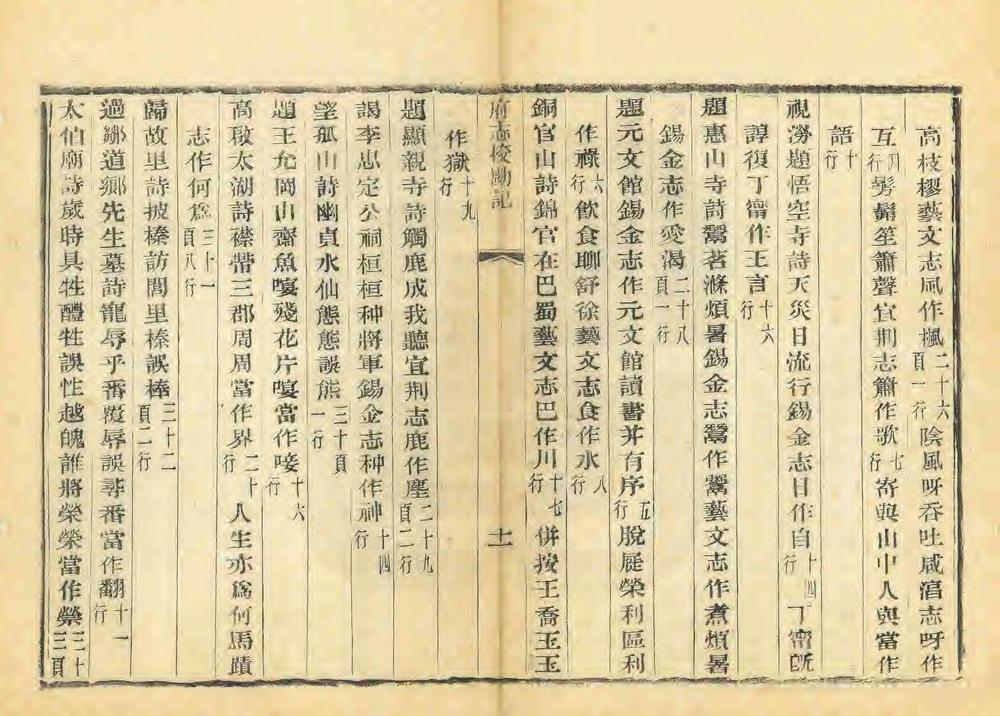 高枝樛藝文志風作楓二十六頁一行陰風呀吞吐咸淳志呀作
互四行髣髴笙簫聲宜荆志簫作歌七行寄與山中人與當作
語十行
視澇題悟空寺詩天災日流行錫金志日作自十四行丁甯旣
諄復丁甯作王言十六行
題惠山寺詩鬻茗滌煩暑錫金志鬻作鬻藝文志作煮煩暑
錫金志作愛渴二十八頁一行
題元文館錫金志作元文館讀書并有序五行脫屣榮利區利
作祿六行飲食聊舒徐藝文志食作水八行
銅官山詩錦官在巴蜀藝文志巴作川十七行併按王喬玉玉
府志校勘記
十一
作獄十九行
題顯親寺詩觸鹿成我聽宜荆志鹿作塵二十九頁二行
謁李忠定公祠桓桓种將軍錫金志种作神十四行
望孤山詩幽貞水仙態態誤熊三十頁一行
題王允岡山齋魚嗄殘花片嗄當作唼十六行
高啟太湖詩襟帶三郡周周當作界二十行人生亦爲何馬蹟
志作何爲三十一頁八行
歸故里詩披榛訪閭里榛誤棒三十二頁二行
過鄒道鄉先生墓詩寵辱乎番覆辱誤蓐番當作翻十一行
太伯廟詩歲時具牲醴牲誤性越醜誰將榮榮當作縈三十三頁